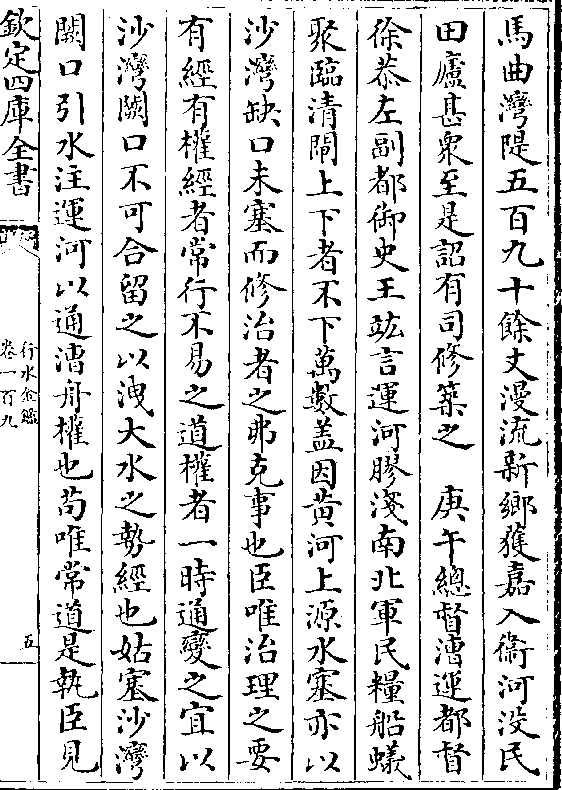 馬曲灣隄五百九十餘丈漫流新鄉獲嘉入衞河没民
田廬甚衆至是詔有司修築之　庚午總督漕運都督
徐恭左副都御史王竑言運河膠淺南北軍民糧船蟻
聚臨清閘上下者不下萬數盖因黄河上源水塞亦以
沙灣缺口未塞而修治者之弗克事也臣唯治理之要
有經有權經者常行不易之道權者一時通變之宜以
沙灣闕口不可合留之以洩大水之勢經也姑塞沙灣
闕口引水注運河以通漕舟權也茍唯常道是執臣見
欽定四庫全書
行水金鑑
卷一百九
五